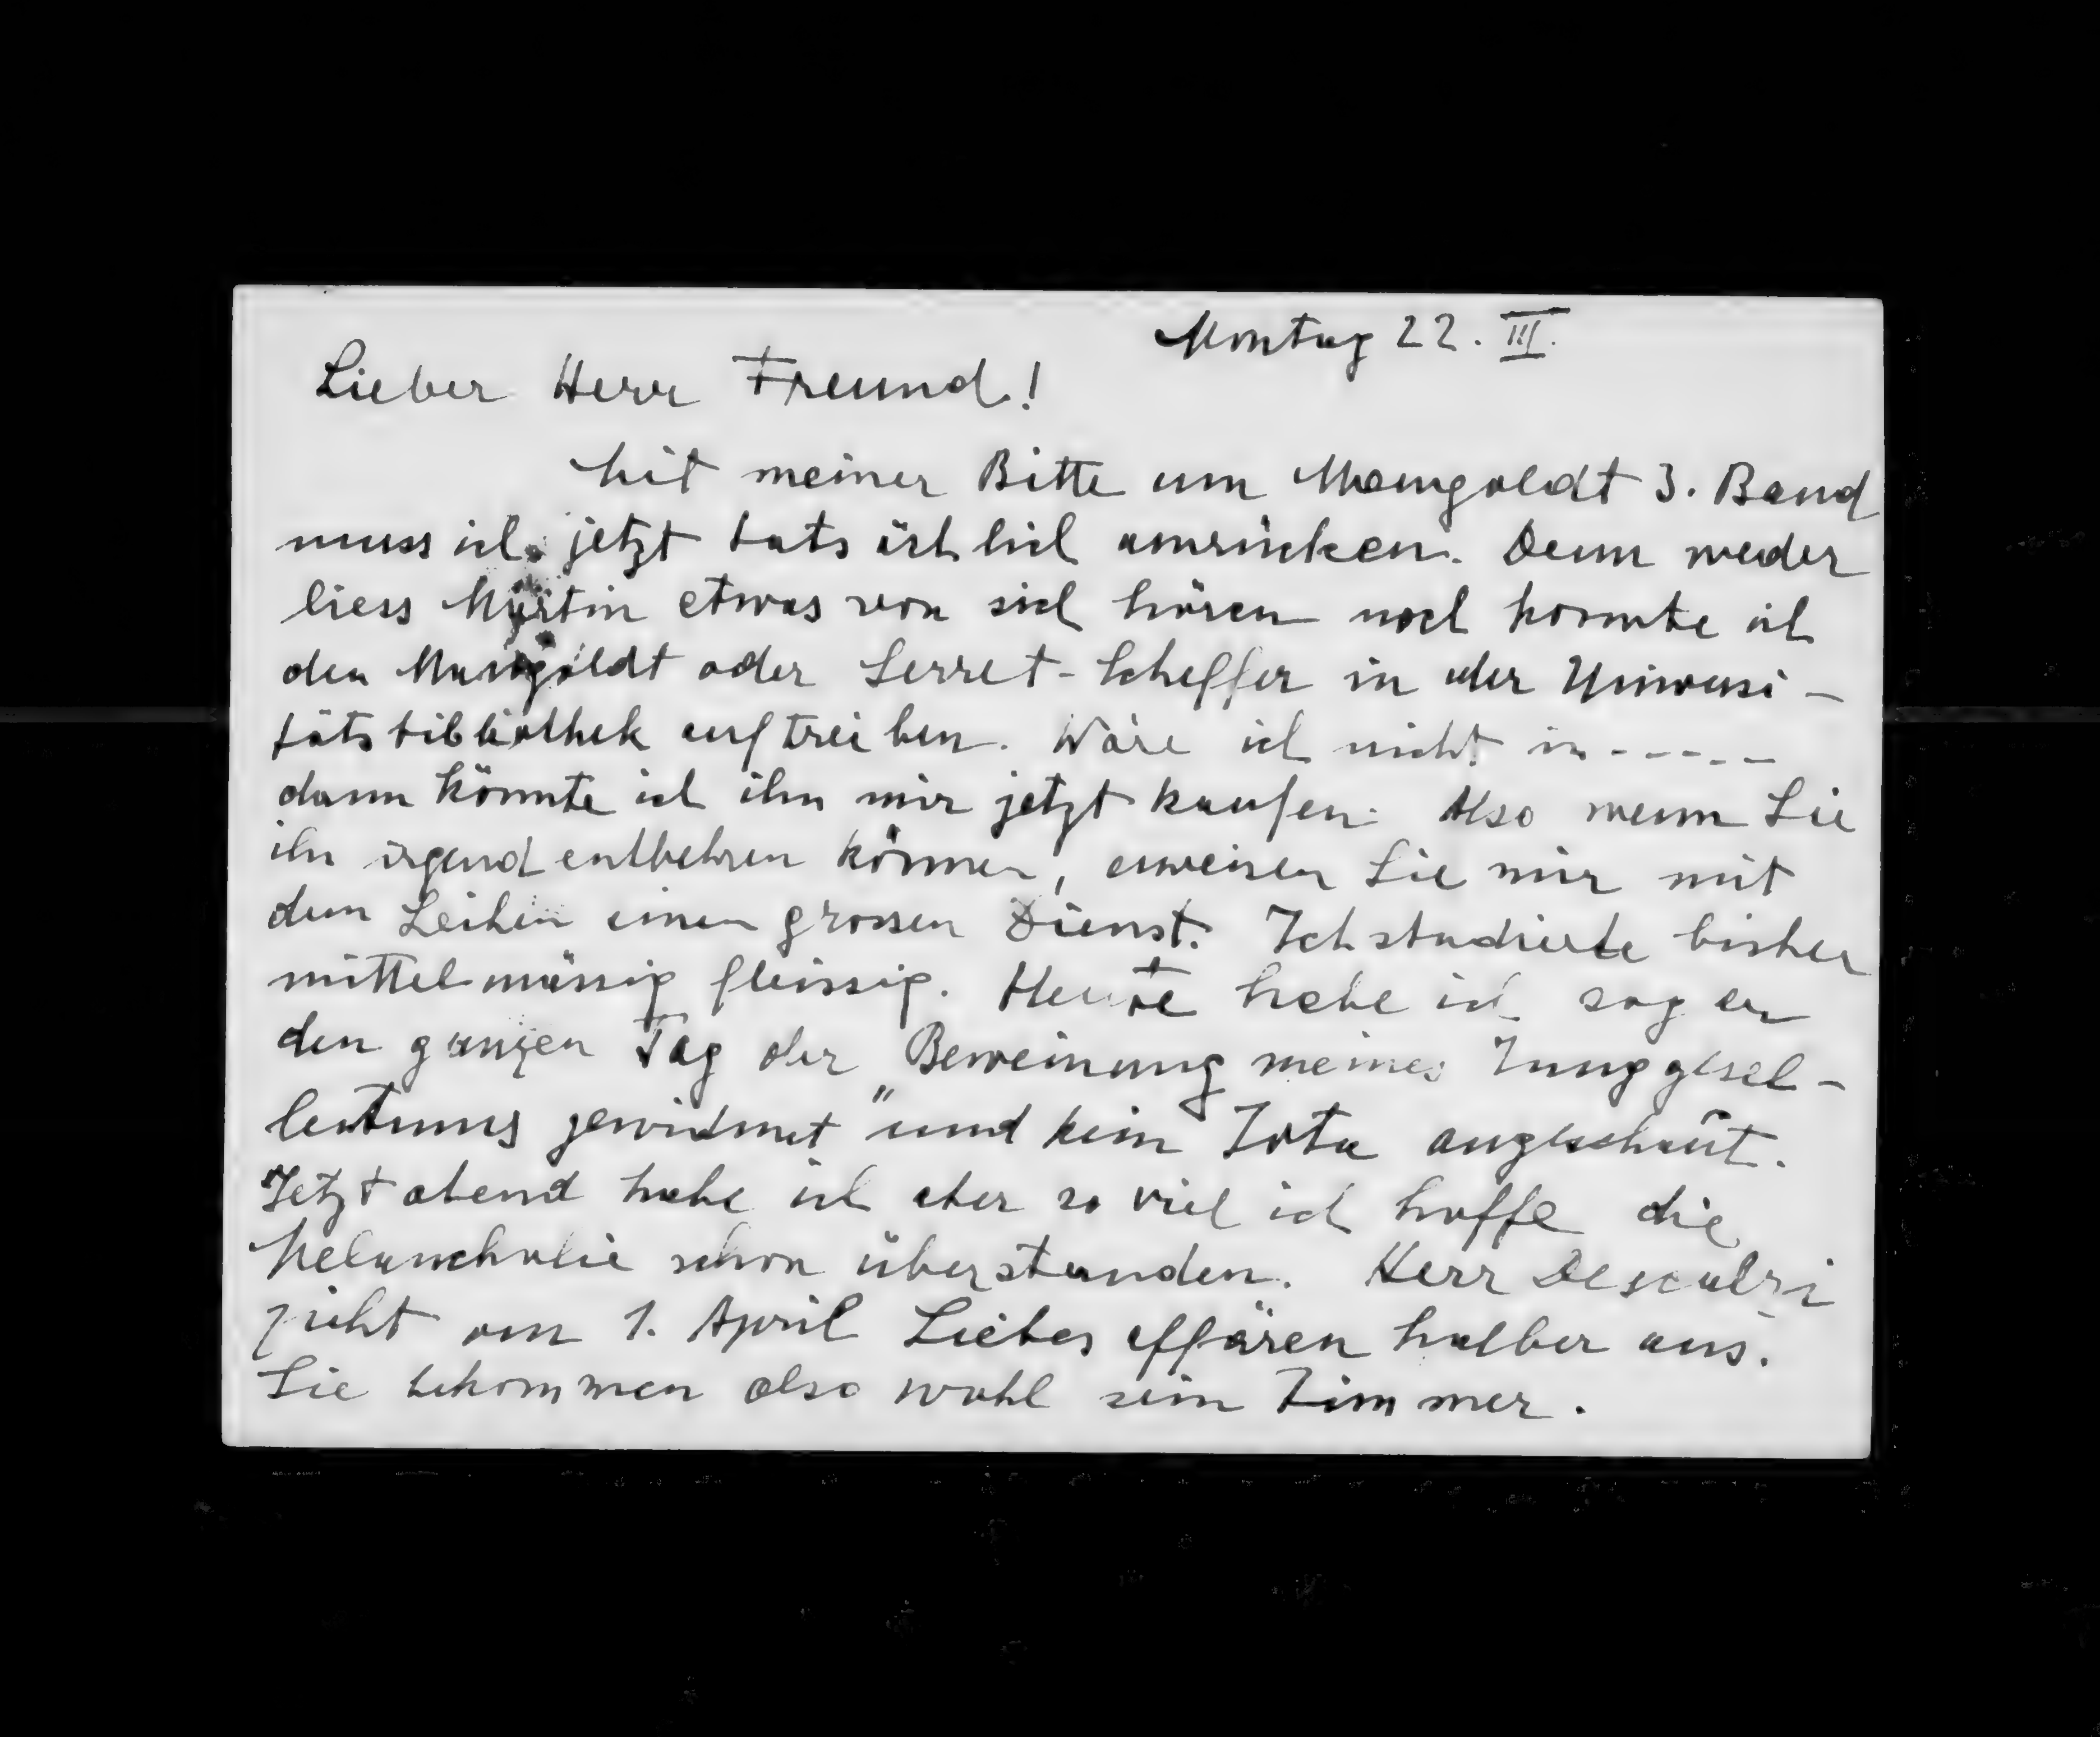 Montag 22. III.
Lieber Herr Freund!
Mit meiner Bitte um Mangoldt 3. Band
muss ich jetzt tatsächlich anrücken. Denn weder
liess Martin etwas von sich hören noch konnte ich
den Mangoldt oder Serret-Scheffer in der Universi-
tätsbibliothek auftreiben. Wäre ich nicht in -----
dann könnte ich ihn mir jetzt kaufen. Also wenn Sie
ihn irgend entbehren können, erweisen Sie mir mit
dem Leihen einen grossen Dienst. Ich studierte bisher
mittelmässig fleissig. Heute habe ich sogar
den ganzen Tag der „Beweinung meines Junggesel-
lentums gewidmet" und kein Jota angeschaut.
Jetzt abend habe ich aber so viel ich hoffe die
Melancholie schon überstanden. Herr Descalzi
zieht am 1. April Liebesaffären halber aus.
Sie bekommen also wohl sein Zimmer.